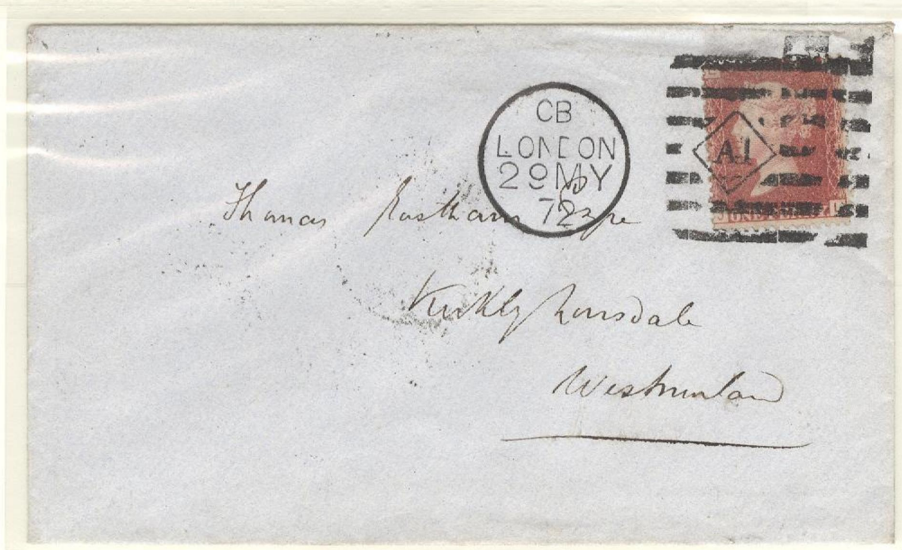 CB
LONDON
29 MY
72
A1
Thomas Eastham
Kirkby Lonsdale
Westmorland